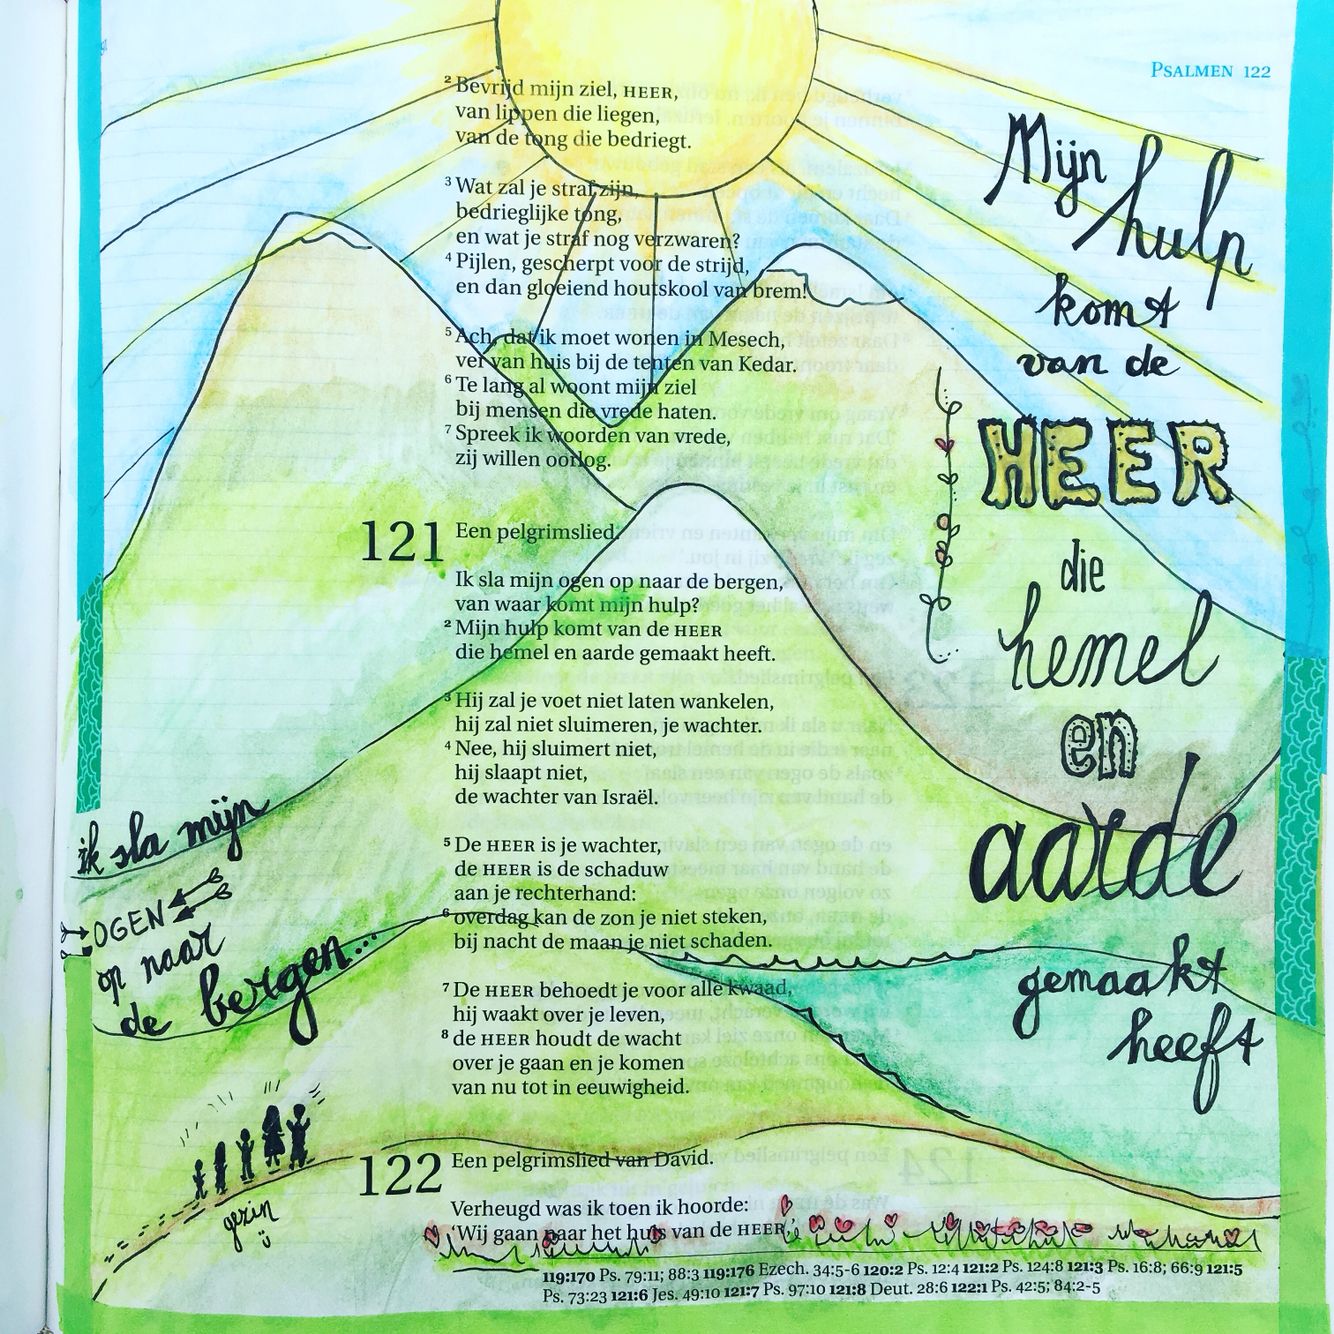 PSALMEN 122
² Bevrijd mijn ziel, HEER,
van lippen die liegen,
van de tong die bedriegt.
³ Wat zal je straf zijn,
bedrieglijke tong,
en wat je straf nog verzwaren?
⁴ Pijlen, gescherpt voor de strijd,
en dan gloeiend houtskool van brem!
⁵ Ach, dat ik moet wonen in Mesech,
ver van huis bij de tenten van Kedar.
⁶ Te lang al woont mijn ziel
bij mensen die vrede haten.
⁷ Spreek ik woorden van vrede,
zij willen oorlog.
121 Een pelgrimslied.
Ik sla mijn ogen op naar de bergen,
van waar komt mijn hulp?
² Mijn hulp komt van de HEER
die hemel en aarde gemaakt heeft.
³ Hij zal je voet niet laten wankelen,
hij zal niet sluimeren, je wachter.
⁴ Nee, hij sluimert niet,
hij slaapt niet,
de wachter van Israël.
⁵ De HEER is je wachter,
de HEER is de schaduw
aan je rechterhand:
⁶ overdag kan de zon je niet steken,
bij nacht de maan je niet schaden.
⁷ De HEER behoedt je voor alle kwaad,
hij waakt over je leven,
⁸ de HEER houdt de wacht
over je gaan en je komen
van nu tot in eeuwigheid.
122 Een pelgrimslied van David.
Verheugd was ik toen ik hoorde:
‘Wij gaan naar het huis van de HEER.’
119:170 Ps. 79:11; 88:3 119:176 Ezech. 34:5-6 120:2 Ps. 12:4 121:2 Ps. 124:8 121:3 Ps. 16:8; 66:9 121:5
Ps. 73:23 121:6 Jes. 49:10 121:7 Ps. 97:10 121:8 Deut. 28:6 122:1 Ps. 42:5; 84:2-5
Mijn
hulp
komt
van de
HEER
die
hemel
en
aarde
gemaakt
heeft
ik sla mijn
OGEN
op naar
de bergen...
gezin